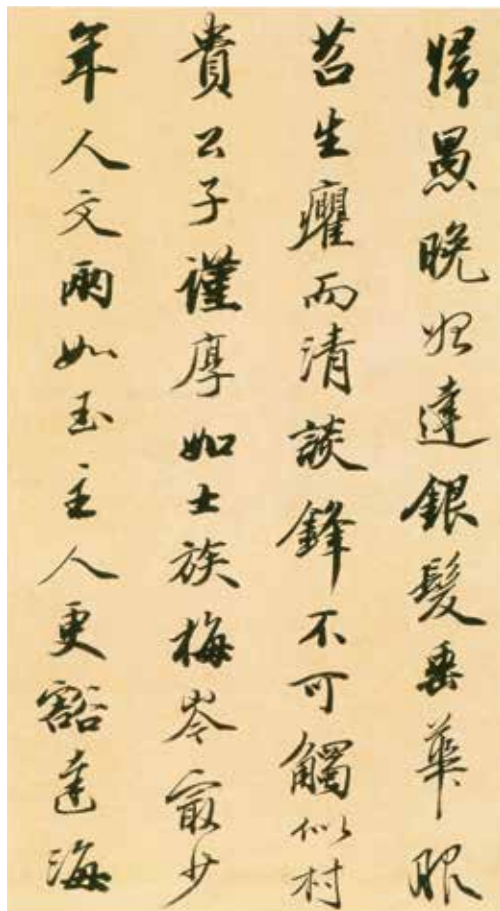 歸愚晚始達銀髮垂華服
苕生癯而清談鋒不可觸似村
貴公子謹厚如士族梅岑最少
年人文兩如玉主人更豁達海